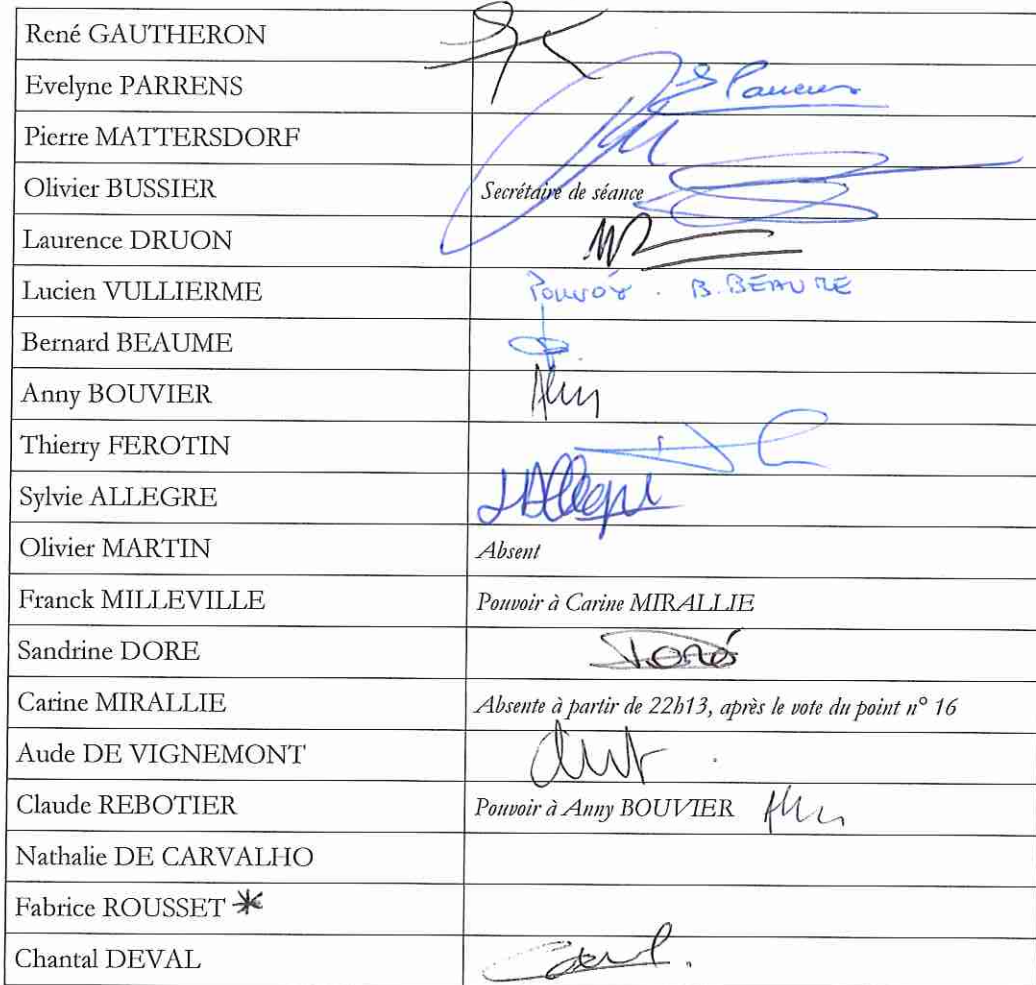 René GAUTHERON
Evelyne PARRENS
Pierre MATTERSDORF
Olivier BUSSIER Secrétaire de séance
Laurence DRUON
Lucien VULLIERME Pouvoir . B. BEAUME
Bernard BEAUME
Anny BOUVIER
Thierry FEROTIN
Sylvie ALLEGRE
Olivier MARTIN Absent
Franck MILLEVILLE Pouvoir à Carine MIRALLIE
Sandrine DORE
Carine MIRALLIE Absente à partir de 22h13, après le vote du point n° 16
Aude DE VIGNEMONT
Claude REBOTIER Pouvoir à Anny BOUVIER
Nathalie DE CARVALHO
Fabrice ROUSSET *
Chantal DEVAL